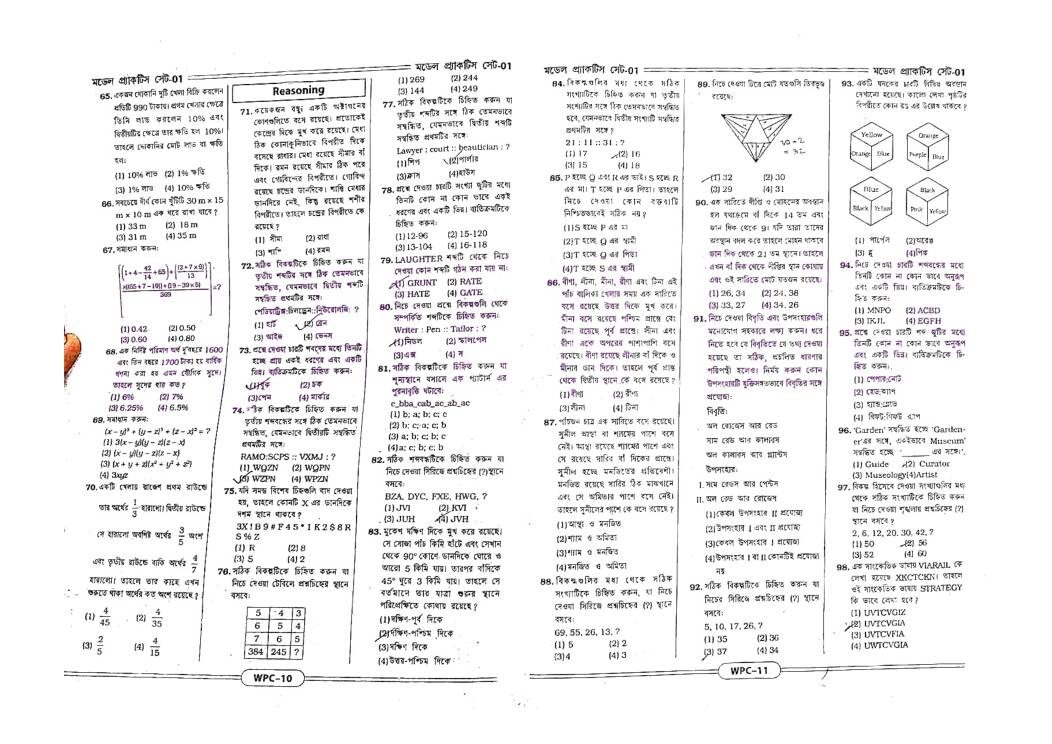 মডেল প্র্যাকটিস সেট-01
65. একজন দোকানি দুটি খেলা বিক্রি করলেন
প্রতিটি 990 টাকায়। প্রথম খেলার ক্ষেত্রে
তিনি লাভ করলেন 10% এবং
দ্বিতীয়টির ক্ষেত্রে তার ক্ষতি হল 10%।
তাহলে দোকানির মোট লাভ বা ক্ষতি
হল:
(1) 10% লাভ (2) 1% ক্ষতি
(3) 1% লাভ (4) 10% ক্ষতি
66. সবচেয়ে দীর্ঘ কোন খুঁটিটি 30 m × 15
m × 10 m এক ঘরে রাখা যাবে ?
(1) 33 m (2) 18 m
(3) 31 m (4) 35 m
67. সমাধান করুন:
= ?
369
(1) 0.42 (2) 0.50
(3) 0.60 (4) 0.80
68. এক নির্দিষ্ট পরিমাণ অর্থ দু'বছরে 1600
এবং তিন বছরে 1700 টাকা হয় বার্ষিক
তাহলে সুদের হার কত ?
(1) 6% (2) 7%
(3) 6.25% (4) 6.5%
69. সমাধান করুন:
(x – y)³ + (y – z)³ + (z – x)³ = ?
(1) 3(x – y)(y – z)(z – x)
(2) (x – y)(y – z)(z – x)
(3) (x + y + z)(x² + y² + z²)
(4) 3xyz
70. একটি খেলায় রাজেশ প্রথম রাউন্ডে
তার অর্থের 1/3 হারালো। দ্বিতীয় রাউন্ডে
সে হারালো অবশিষ্ট অর্থের 3/5 অংশ
এবং তৃতীয় রাউন্ডে বাকি অর্থের 4/7
হারালো। তাহলে তার কাছে এখন
শুরুতে থাকা অর্থের কত অংশ রয়েছে ?
(1) 4/45 (2) 4/35
(3) 2/5 (4) 4/15
Reasoning
71. কয়েকজন বন্ধু একটি অষ্টভুজের
কোণগুলিতে বসে রয়েছে। প্রত্যেকেই
কেন্দ্রের দিকে মুখ করে রয়েছে। মেধা
ঠিক কোনাকুনিভাবে বিপরীত দিকে
বসেছে রাধার। মেধা রয়েছে সীমার বাঁ
দিকে। রমন রয়েছে সীমার ঠিক পরে
এবং গোবিন্দের বিপরীতে। গোবিন্দ
রয়েছে চন্দ্রের ডানদিকে। শান্তি মেধার
ডানদিকে নেই, কিন্তু রয়েছে শশীর
বিপরীতে। তাহলে চন্দ্রের বিপরীতে কে
রয়েছে ?
(1) সীমা (2) রাধা
(3) শান্তি (4) রমন
72. সঠিক বিকল্পটিকে চিহ্নিত করুন যা
তৃতীয় শব্দটির সঙ্গে ঠিক তেমনভাবে
সম্বন্ধিত, যেমনভাবে দ্বিতীয় শব্দটি
সম্বন্ধিত প্রথমটির সঙ্গে:
পেডিয়াট্রিক্স:চিলড্রেন::নিউরোলজি: ?
(1) হার্ট (2) ব্রেন
(3) আইজ (4) ভেনস
73. প্রশ্নে দেওয়া চারটি শব্দের মধ্যে তিনটি
হচ্ছে প্রায় একই ধরণের এবং একটি
ভিন্ন। ব্যতিক্রমটিকে চিহ্নিত করুন:
(2) চক
(3) পেন (4) মার্কার
74. সঠিক বিকল্পটিকে চিহ্নিত করুন যা
তৃতীয় শব্দবন্ধের সঙ্গে ঠিক তেমনভাবে
সম্বন্ধিত, যেমনভাবে দ্বিতীয়টি সম্বন্ধিত
প্রথমটির সঙ্গে:
RAMO:SCPS :: VXMJ : ?
(1) WQZN (2) WQPN
(3) WZPN (4) WPZN
75. যদি সমস্ত বিশেষ চিহ্নগুলি বাদ দেওয়া
হয়, তাহলে কোনটি X এর ডানদিকে
দশম স্থানে থাকবে ?
3X!B9#F45*1K2$8R
S%Z
(1) R (2) 8
(3) S (4) 2
76. সঠিক বিকল্পটিকে চিহ্নিত করুন যা
নিচে দেওয়া টেবিলে প্রশ্নচিহ্নের স্থানে
বসবে:
5 4 3
6 5 4
7 6 5
384 245 ?
WPC-10
মডেল প্র্যাকটিস সেট-01
(1) 269 (2) 244
(3) 144 (4) 249
77. সঠিক বিকল্পটিকে চিহ্নিত করুন যা
তৃতীয় শব্দটির সঙ্গে ঠিক তেমনভাবে
সম্বন্ধিত, যেমনভাবে দ্বিতীয় শব্দটি
সম্বন্ধিত প্রথমটির সঙ্গে:
Lawyer : court :: beautician : ?
(1) শিপ (2) পার্লার
(3) ক্লাস (4) হাউস
78. প্রশ্নে দেওয়া চারটি সংখ্যা জুটির মধ্যে
তিনটি কোন না কোন ভাবে একই
ধরণের এবং একটি ভিন্ন। ব্যতিক্রমটিকে
চিহ্নিত করুন:
(1) 12-96 (2) 15-120
(3) 13-104 (4) 16-118
79. LAUGHTER শব্দটি থেকে নিচে
দেওয়া কোন শব্দটি গঠন করা যায় না:
(1) GRUNT (2) RATE
(3) HATE (4) GATE
80. নিচে দেওয়া প্রশ্নে বিকল্পগুলি থেকে
সম্পর্কিত শব্দটিকে চিহ্নিত করুন:
Writer : Pen :: Tailor : ?
(1) নিডল (2) স্কালপেল
(3) এক্স (4) স
81. সঠিক বিকল্পটিকে চিহ্নিত করুন যা
শূন্যস্থানে বসালে এক প্যাটার্ন এর
পুনরাবৃত্তি ঘটাবে:
c_bba_cab_ac_ab_ac
(1) b; a; b; c; c
(2) b; c; a; c; b
(3) a; b; c; b; c
(4) a; c; b; c; b
82. সঠিক শব্দবন্ধটিকে চিহ্নিত করুন যা
নিচে দেওয়া সিরিজে প্রশ্নচিহ্নের (?) স্থানে
বসবে:
BZA, DYC, FXE, HWG, ?
(1) JVI (2) KVI
(3) JUH (4) JVH
83. মুকেশ দক্ষিণ দিকে মুখ করে রয়েছে।
সে সোজা পাঁচ কিমি হাঁটে এবং সেখান
থেকে 90° কোণে ডানদিকে ঘোরে ও
আরো 5 কিমি যায়। তারপর বাঁদিকে
45° ঘুরে 3 কিমি যায়। তাহলে সে
বর্তমানে তার যাত্রা শুরুর স্থানে
পরিপ্রেক্ষিতে কোথায় রয়েছে ?
(1) দক্ষিণ-পূর্ব দিকে
(2) দক্ষিণ-পশ্চিম দিকে
(3) দক্ষিণ দিকে
(4) উত্তর-পশ্চিম দিকে
মডেল প্র্যাকটিস সেট-01
84. বিকল্পগুলির মধ্য থেকে সঠিক
সংখ্যাটিকে চিহ্নিত করুন যা তৃতীয়
সংখ্যাটির সঙ্গে ঠিক তেমনভাবে সম্বন্ধিত
হবে, যেমনভাবে দ্বিতীয় সংখ্যাটি সম্বন্ধিত
প্রথমটির সঙ্গে ?
21 : 11 :: 31 : ?
(1) 17 (2) 16
(3) 15 (4) 18
85. P হচ্ছে Q এবং R এর ভাই। S হচ্ছে R
এর মা। T হচ্ছে P এর পিতা। তাহলে
নিচে দেওয়া কোন বক্তব্যটি
নিশ্চিতভাবেই সঠিক নয় ?
(1) S হচ্ছে P এর মা
(2) T হচ্ছে Q এর স্বামী
(3) T হচ্ছে Q এর পিতা
(4) T হচ্ছে S এর স্বামী
86. বীণা, লীনা, মীনা, রীণা এবং টিনা এই
পাঁচ বালিকা খেলার সময় এক সারিতে
বসে রয়েছে উত্তর দিকে মুখ করে।
মীনা বসে রয়েছে পশ্চিম প্রান্তে যেং
টিনা রয়েছে পূর্ব প্রান্তে। লীনা এবং
রীণা একে অপরের পাশাপাশি বসে
রয়েছে। বীণা রয়েছে লীনার বাঁ দিকে ও
মীনার ডান দিকে। তাহলে পূর্ব প্রান্ত
থেকে দ্বিতীয় স্থানে কে বসে রয়েছে ?
(1) বীণা (2) রীণা
(3) লীনা (4) টিনা
87. পাঁচজন চাত্র এক সারিতে বসে রয়েছে।
সুনীল আস্থা বা শ্যামের পাশে বসে
নেই। আস্থা রয়েছে শ্যামের পাশে এবং
সে রয়েছে সারির বাঁ দিকের প্রান্তে।
সুনীল হচ্ছে মনজিতের প্রতিবেশী।
মনজিত রয়েছে সারির ঠিক মাঝখানে
এবং সে অমিতার পাশে বসে নেই।
তাহলে সুনীলের পাশে কে বসে রয়েছে ?
(1) আস্থা ও মনজিত
(2) শ্যাম ও অমিতা
(3) শ্যাম ও মনজিত
(4) মনজিত ও অমিতা
88. বিকল্পগুলির মধ্য থেকে সঠিক
সংখ্যাটিকে চিহ্নিত করুন, যা নিচে
দেওয়া সিরিজে প্রশ্নচিহ্নের (?) স্থানে
বসবে:
69, 55, 26, 13, ?
(1) 5 (2) 2
(3) 4 (4) 3
89. নিচে দেওয়া চিত্রে মোট কতগুলি ত্রিভুজ
রয়েছে:
(1) 32 (2) 30
(3) 29 (4) 31
90. এক সারিতে দীপ্তি ও মোহনের অবস্থান
হল যথাক্রমে বাঁ দিকে 14 তম এবং
ডান দিক থেকে 9। যদি তারা তাদের
অবস্থান বদল করে তাহলে মোহন থাকবে
ডান দিক থেকে 21 তম স্থানে। তাহলে
এখন বাঁ দিক থেকে দীপ্তির স্থান কোথায়
এবং ওই সারিতে মোট কতজন রয়েছে:
(1) 26, 34 (2) 24, 38
(3) 33, 27 (4) 34, 26
91. নিচে দেওয়া বিবৃতি এবং উপসংহারগুলি
মনোযোগ সহকারে লক্ষ্য করুন। ধরে
নিতে হবে যে বিবৃতিতে যে তথ্য দেওয়া
হয়েছে তা সঠিক, প্রচলিত ধারণার
পরিপন্থী হলেও। নির্ণয় করুন কোন
উপসংহারটি যুক্তিসঙ্গতভাবে বিবৃতির সঙ্গে
প্রযোজ্য:
বিবৃতি:
অল রোজেস আর রেড
সাম রেড আর কালারস
অল কালারস আর প্ল্যান্টস
উপসংহার:
I. সাম রেডস আর পেন্টস
II. অল রেড আর রোজেস
(1) কেবল উপসংহার II প্রযোজ্য
(2) উপসংহার I এবং II প্রযোজ্য
(3) কেবল উপসংহার I প্রযোজ্য
(4) উপসংহার I বা II কোনটিই প্রযোজ্য
নয়
92. সঠিক বিকল্পটিকে চিহ্নিত করুন যা
নিচের সিরিজে প্রশ্নচিহ্নের (?) স্থানে
বসবে:
5, 10, 17, 26, ?
(1) 35 (2) 36
(3) 37 (4) 34
WPC-11
মডেল প্র্যাকটিস সেট-01
93. একটি ঘনকের চারটি বিভিন্ন অবস্থান
দেখানো হয়েছে। কালো লেখা পৃষ্ঠটির
বিপরীতে কোন রঙ এর উল্লেখ থাকবে ?
Yellow Orange Blue
Orange Purple Blue
Blue Black Yellow
Black Pink Yellow
(1) পার্পেল (2) অরেঞ্জ
(3) ব্লু (4) পিঙ্ক
94. নিচে দেওয়া চারটি শব্দবন্ধের মধ্যে
তিনটি কোন না কোন ভাবে অনুরূপ
এবং একটি ভিন্ন। ব্যতিক্রমটিকে চি-
হ্নিত করুন:
(1) MNPO (2) ACBD
(3) IKJL (4) EGFH
95. প্রশ্নে দেওয়া চারটি শব্দ জুটির মধ্যে
তিনটি কোন না কোন ভাবে অনুরূপ
এবং একটি ভিন্ন। ব্যতিক্রমটিকে চি-
হ্নিত করুন:
(1) পেপার:নোট
(2) হেড:ক্যাপ
(3) হ্যান্ড:গ্লোভ
96. 'Garden' সম্বন্ধিত হচ্ছে 'Garden-
er'এর সঙ্গে, একইভাবে Museum'
সম্বন্ধিত হচ্ছে '______ এর সঙ্গে।'.
(1) Guide (2) Curator
(3) Museology(4)Artist
97. বিকল্প হিসেবে দেওয়া সংখ্যাগুলির মধ্য
থেকে সঠিক সংখ্যাটিকে চিহ্নিত করুন
যা নিচে দেওয়া শৃঙ্খলায় প্রশ্নচিহ্নের (?)
স্থানে বসবে ?
2, 6, 12, 20, 30, 42, ?
(1) 50 (2) 56
(3) 52 (4) 60
98. এক সাংকেতিক ভাষায় VIARAIL কে
লেখা হয়েছে XKCTCKN। তাহলে
ওই সাংকেতিক ভাষায় STRATEGY
কি ভাবে লেখা হবে ?
(1) UVTCVGIZ
(2) UVTCVGIA
(3) UVTCVFIA
(4) UWTCVGIA